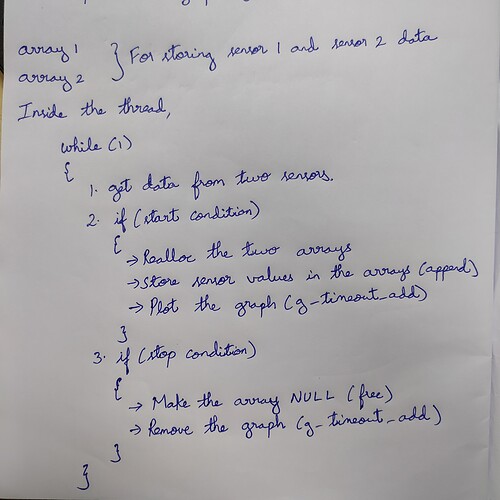 array 1 } For storing sensor 1 and sensor 2 data
array 2
Inside the thread,
while (1)
{
1. get data from two sensors.
2. if (start condition)
{
→ Realloc the two arrays
→ Store sensor values in the arrays (append)
→ Plot the graph (g_timeout_add)
}
3. if (stop condition)
{
→ Make the array NULL (free)
→ Remove the graph (g_timeout_add)
}
}